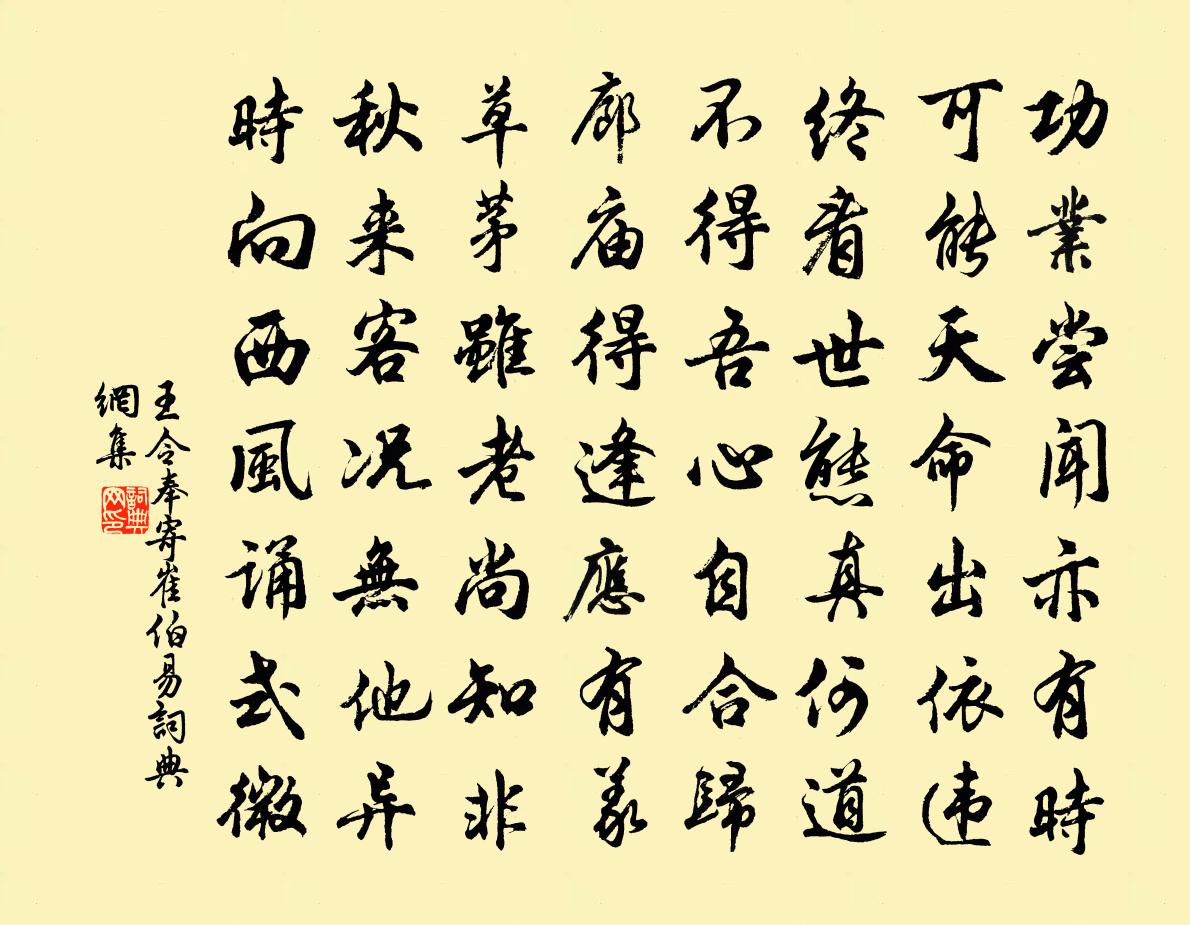 功業尝聞亦有時
可能天命出依违
终看世態真何道
不得吾心自合歸
廊庙得逢應有義
草茅雖老尚知非
秋来客况無他异
時向西風诵式微
王令奉寄崔伯易詞典
網集
詞典
网印